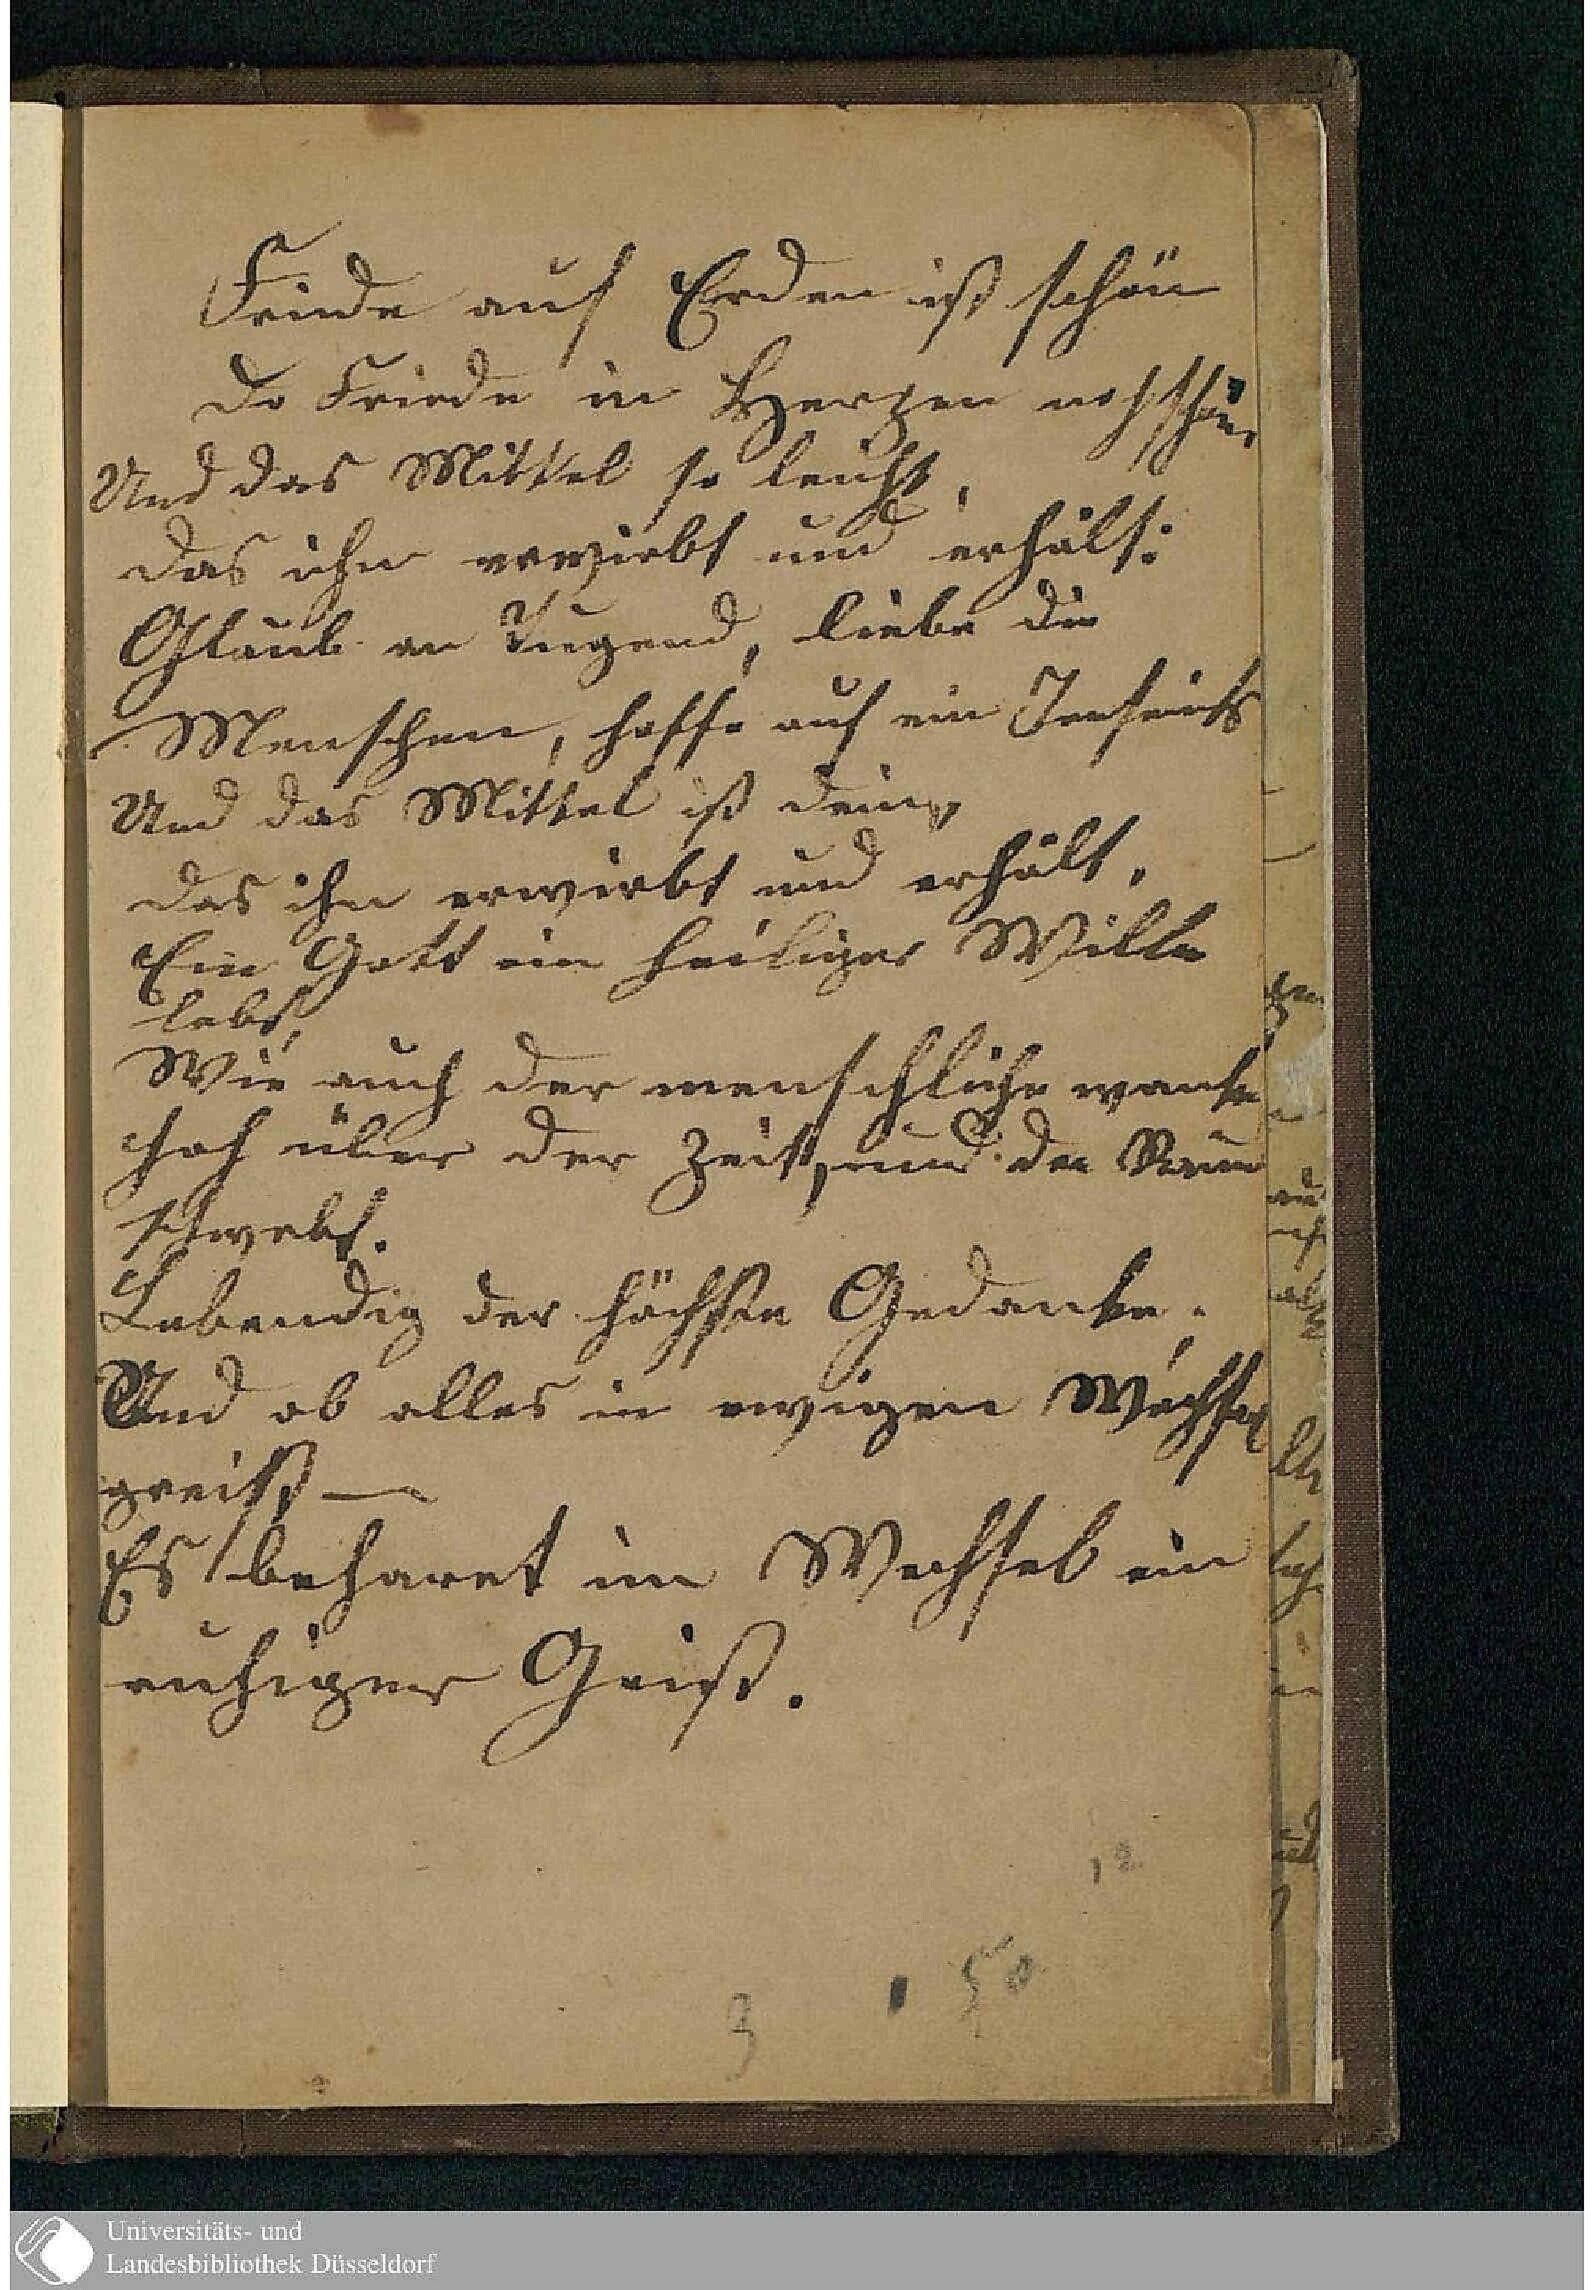 Friede auf Erden ist schön
Do Friede in Herzen noch schön,
Und das Mittel so leicht,
das ihn erwirbt und erhält:
Glaub an Tugend, liebe die
Menschen, hoffe auf ein Jenseits
Und das Mittel ist dein,
das ihn erwirbt und erhält.
Ein Gott ein heiliger Wille
lebt,
Wie auch der menschliche wanke
hoch über der Zeit, und den Raum
schwebt.
Lebendig der höchste Gedanke.
Und ob alles in ewigen Wechsel
greist,
Es beharet im Wechsel ein
ruhiger Geist.
12
3 50
Universitäts- und
Landesbibliothek Düsseldorf